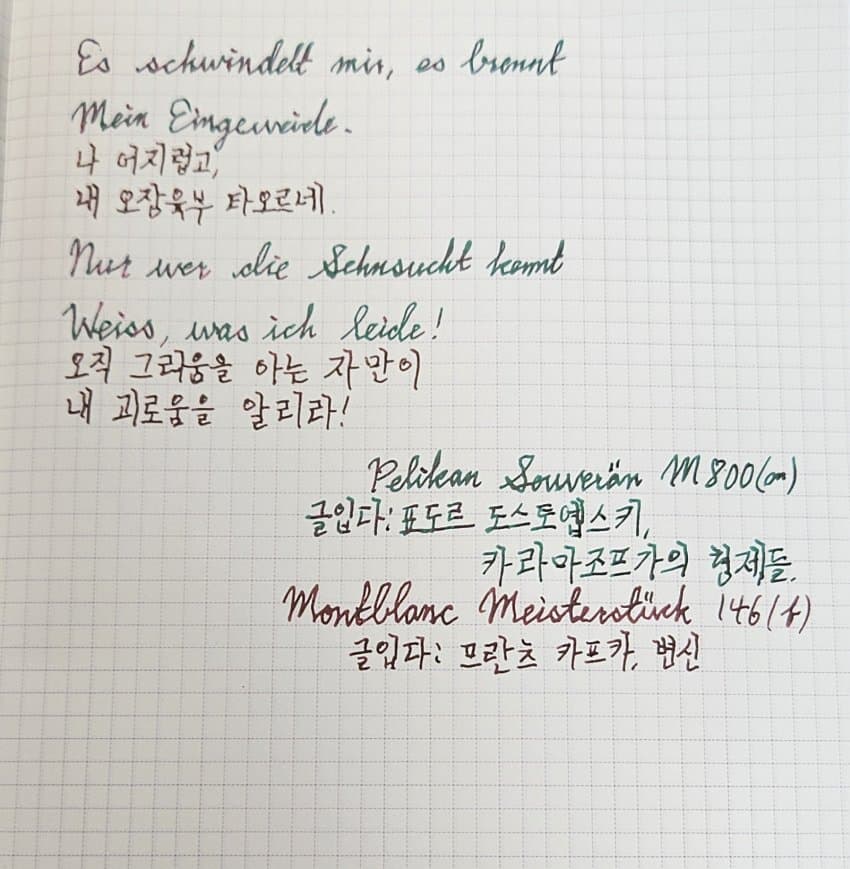 Es schwindelt mir, es brennt
Mein Eingeweide.
나 어지럽고,
내 오장육부 타오르네.
Nur wer die Sehnsucht kennt
Weiss, was ich leide!
오직 그리움을 아는 자만이
내 괴로움을 알리라!
Pelikan Souverän M800(om)
글입다: 표도르 도스토옙스키,
카라마조프가의 형제들.
Montblanc Meisterstück 146(f)
글입다: 프란츠 카프카, 변신